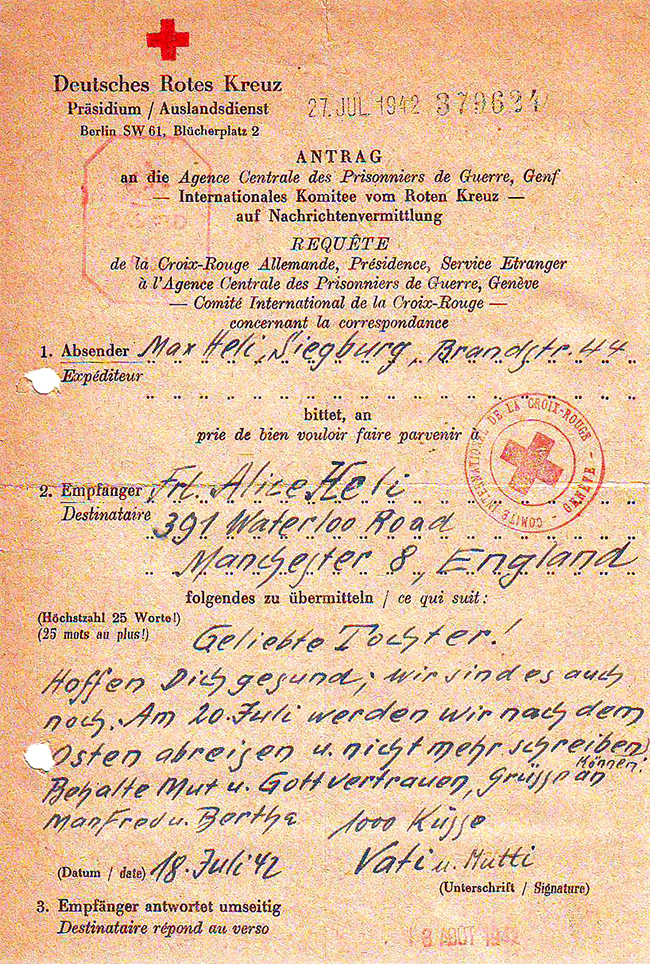 Deutsches Rotes Kreuz
Präsidium / Auslandsdienst
Berlin SW 61, Blücherplatz 2
27. JUL 1942 379624
ANTRAG
an die Agence Centrale des Prisonniers de Guerre, Genf
— Internationales Komitee vom Roten Kreuz —
auf Nachrichtenvermittlung
REQUÊTE
de la Croix-Rouge Allemande, Présidence, Service Etranger
à l'Agence Centrale des Prisonniers de Guerre, Genève
— Comité International de la Croix-Rouge —
concernant la correspondance
1. Absender Max Heli, Siegburg, Brandstr. 44
Expéditeur
bittet, an
prie de bien vouloir faire parvenir à
COMITÉ INTERNATIONAL DE LA CROIX-ROUGE - GENÈVE -
2. Empfänger Frl. Alice Heli
Destinataire 391 Waterloo Road
Manchester 8, England
folgendes zu übermitteln / ce qui suit:
(Höchstzahl 25 Worte!)
(25 mots au plus!)
Geliebte Tochter!
Hoffen Dich gesund; wir sind es auch
noch. Am 20. Juli werden wir nach dem
Osten abreisen u. nicht mehr schreiben
können;
Behalte Mut u. Gottvertrauen, grüsse an
Manfred u. Bertha 1000 Küsse
(Datum / date) 18. Juli 42 Vati u. Mutti
(Unterschrift / Signature)
3. Empfänger antwortet umseitig
Destinataire répond au verso